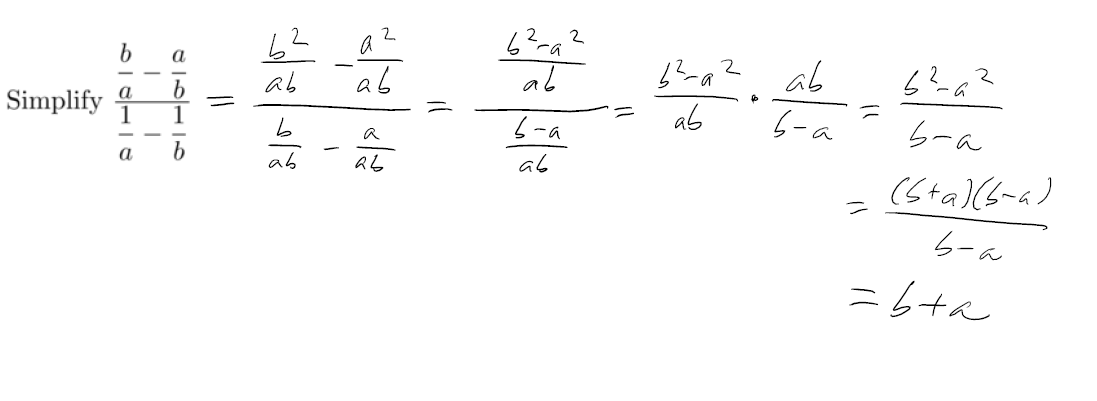 Simplify \frac{\frac{b}{a} - \frac{a}{b}}{\frac{1}{a} - \frac{1}{b}} = \frac{\frac{b^2}{ab} - \frac{a^2}{ab}}{\frac{b}{ab} - \frac{a}{ab}} = \frac{\frac{b^2-a^2}{ab}}{\frac{b-a}{ab}} = \frac{b^2-a^2}{ab} \cdot \frac{ab}{b-a} = \frac{b^2-a^2}{b-a}
= \frac{(b+a)(b-a)}{b-a}
= b+a